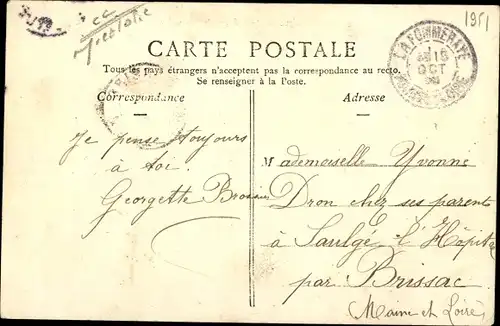 1951
CARTE POSTALE
Tous les pays étrangers n'acceptent pas la correspondance au recto.
Se renseigner à la Poste.
Correspondance
Adresse
LA POMMERAYE
15
OCT
MAINE-ET-LOIRE
Je pense toujours
à toi
Georgette
Mademoiselle Yvonne
Dron chez ses parents
à Saulgé l'Hôpital
par Brissac
(Maine et Loire)